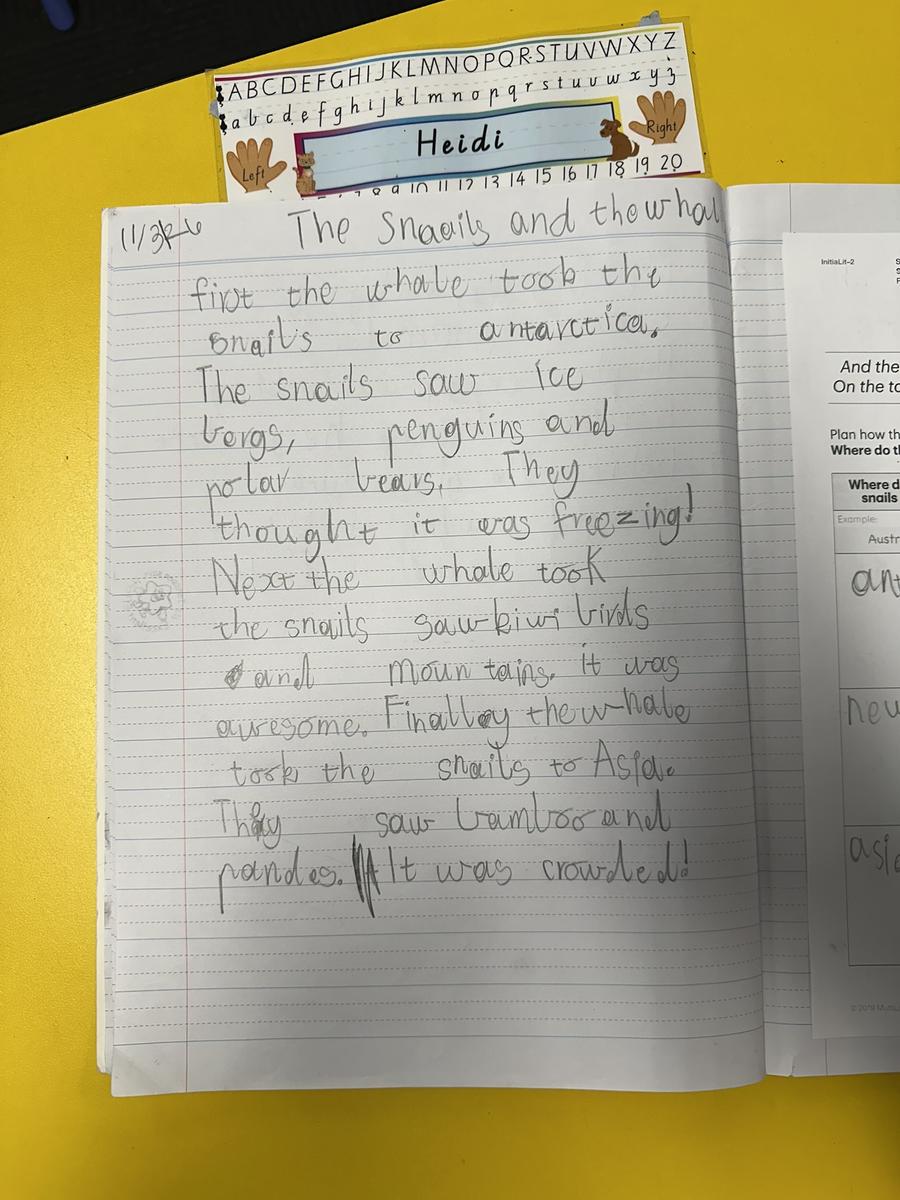 ABCDEFGHIJKLMNOPQRSTUVWXYZ
abcdefghijklmnopqrstuvwxyz
Left
Heidi
Right
9 10 11 12 13 14 15 16 17 18 19 20
The Snaails and the whal
first the whale took the
snails to antarctica.
The snails saw ice
bergs, penguins and
polar bears. They
thought it was freezing!
Next the whale took
the snails saw kiwi birds
and moun tains. it was
awesome. Finalley the whale
took the snails to Asia.
They saw bamboo and
pandes. It was crowded!
InitiaLit–2
And the
On the to
Plan how th
Where do th
Where d
snails
Example:
Austr
ant
new
asia